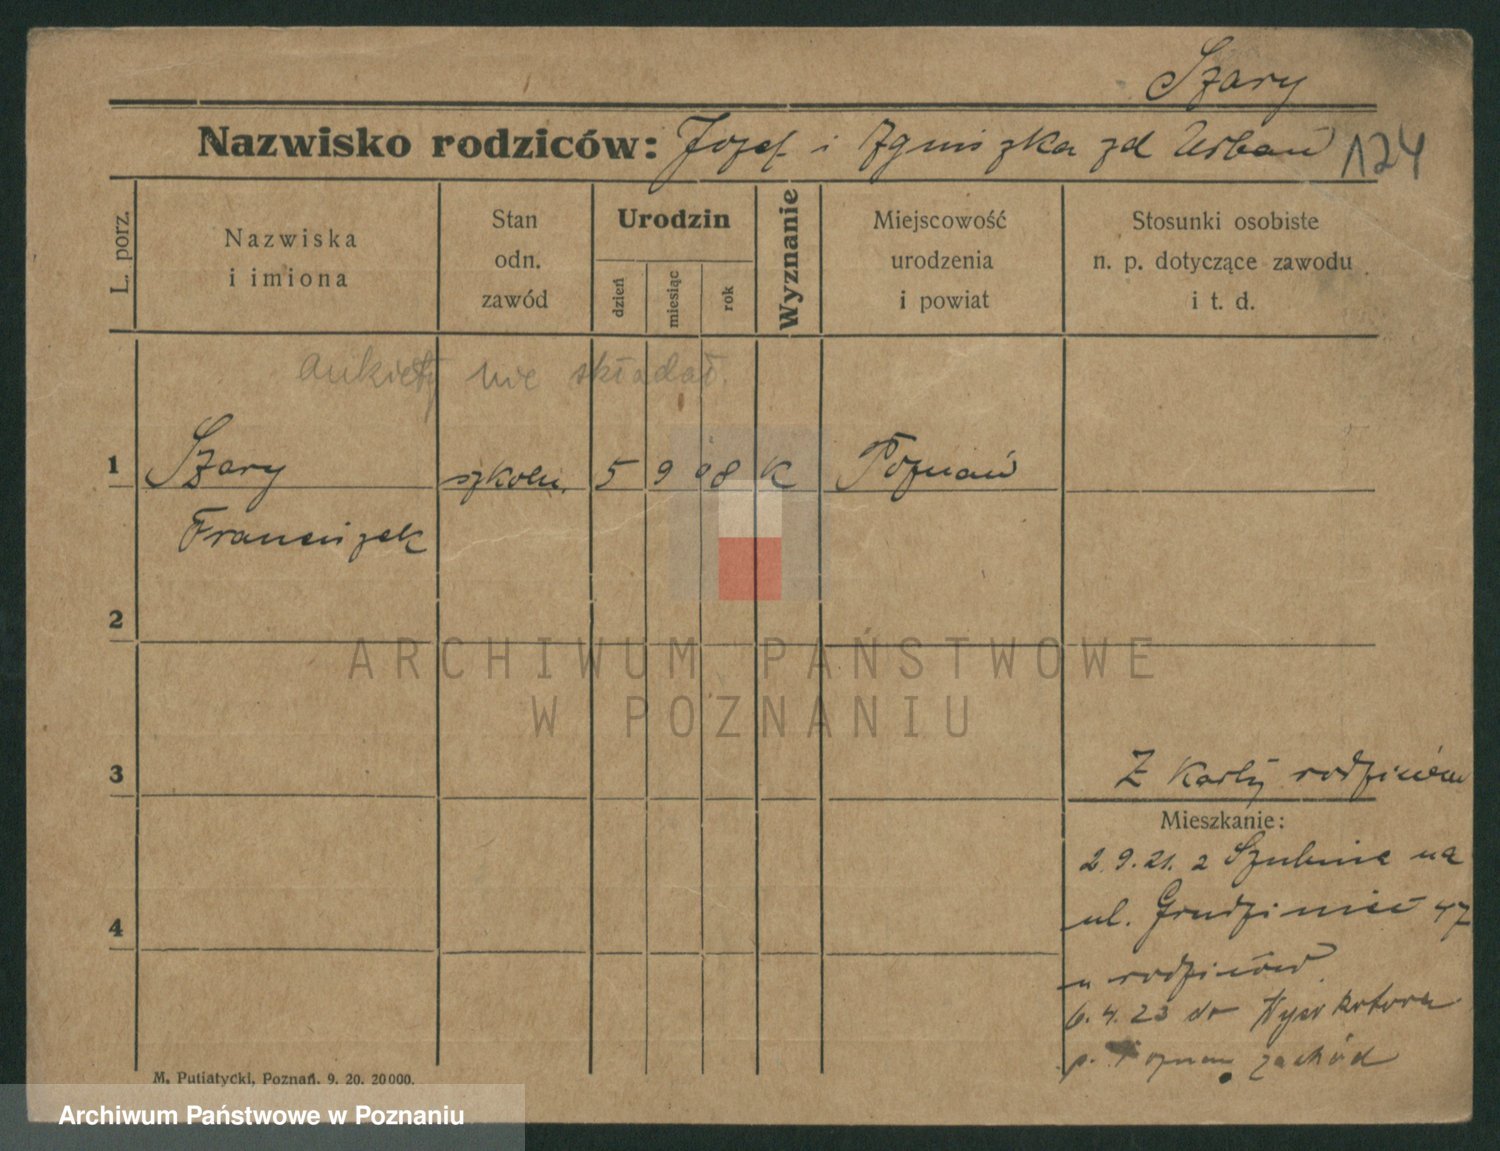 Szary
Nazwisko rodziców: Jozef i Agniszka zd Urban 124
L. porz.
Nazwiska
i imiona
Stan
odn.
zawód
Urodzin
dzień
miesiąc
rok
Wyznanie
Miejscowość
urodzenia
i powiat
Stosunki osobiste
n. p. dotyczące zawodu
i t. d.
ankiety nie składał.
1 Szary szkoln. 5 9 08 K Poznań
Franciszek
2
ARCHIWUM PAŃSTWOWE
W POZNANIU
3
Z Karty rodziców
Mieszkanie:
2.9.21. z Szubina na
ul. Grudzieniec 47
4
u rodziców
6.4.23 do Wysokotowa
p. Poznan zachód
M. Putiatycki, Poznań. 9. 20. 20000.
Archiwum Państwowe w Poznaniu